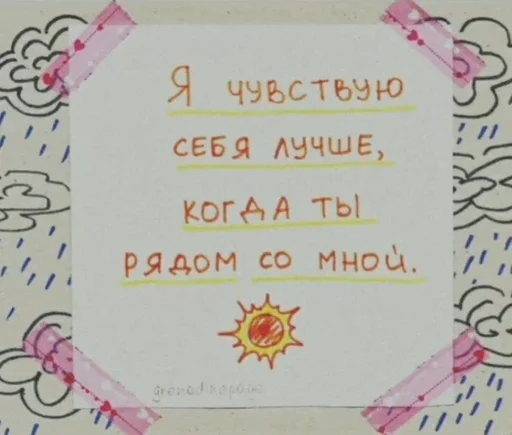 Я ЧУВСТВУЮ
СЕБЯ ЛУЧШЕ,
КОГДА ТЫ
РЯДОМ СО МНОЙ.